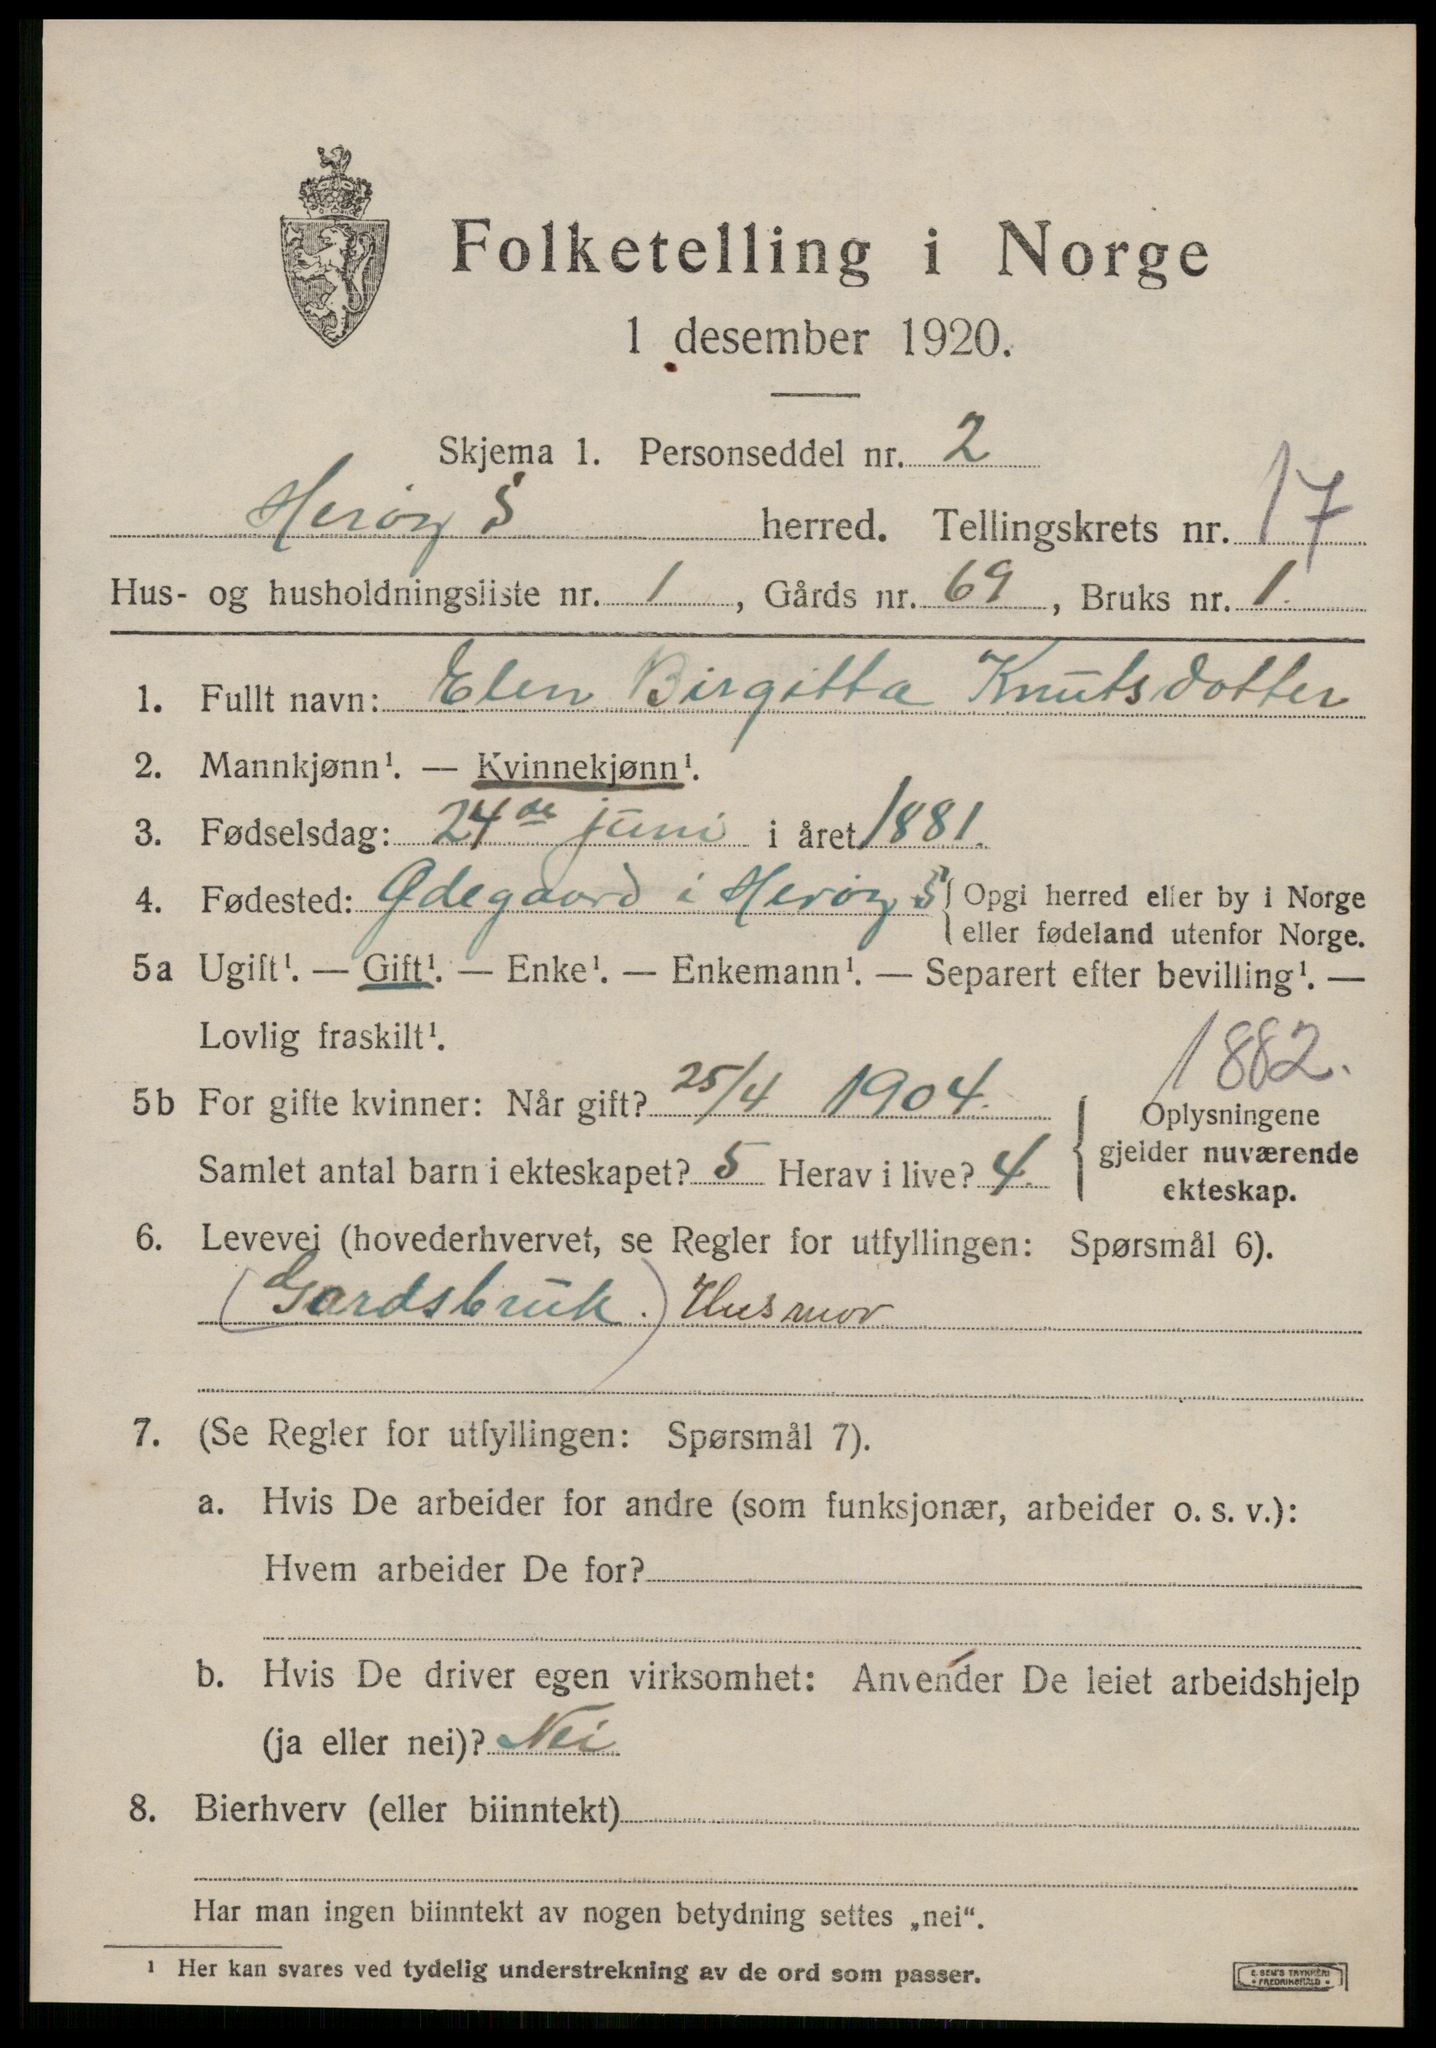 Folketelling i Norge
1 desember 1920.
Skjema 1. Personseddel nr. 2
Herøy S herred. Tellingskrets nr. 17
Hus- og husholdningsliste nr. 1, Gårds nr. 69, Bruks nr. 1.
1. Fullt navn: Elen Birgitta Knutsdotter
2. Mannkjønn¹. — Kvinnekjønn¹.
3. Fødselsdag: 24de juni i året 1881.
4. Fødested: Ødegaard i Herøy S { Opgi herred eller by i Norge
eller fødeland utenfor Norge.
5a Ugift¹. — Gift¹. — Enke¹. — Enkemann¹. — Separert efter bevilling¹. —
Lovlig fraskilt¹.
1882.
5b For gifte kvinner: Når gift? 25/4 1904.
Samlet antal barn i ekteskapet? 5 Herav i live? 4.
Oplysningene
gjelder nuværende
ekteskap.
6. Levevei (hovederhvervet, se Regler for utfyllingen: Spørsmål 6).
(Gardsbruk.) Husmor
7. (Se Regler for utfyllingen: Spørsmål 7).
a. Hvis De arbeider for andre (som funksjonær, arbeider o. s. v.):
Hvem arbeider De for?
b. Hvis De driver egen virksomhet: Anvender De leiet arbeidshjelp
(ja eller nei)? Nei
8. Bierhverv (eller biinntekt)
Har man ingen biinntekt av nogen betydning settes „nei“.
¹ Her kan svares ved tydelig understrekning av de ord som passer.
E. SEM'S TRYKKERI
FREDRIKSHALD